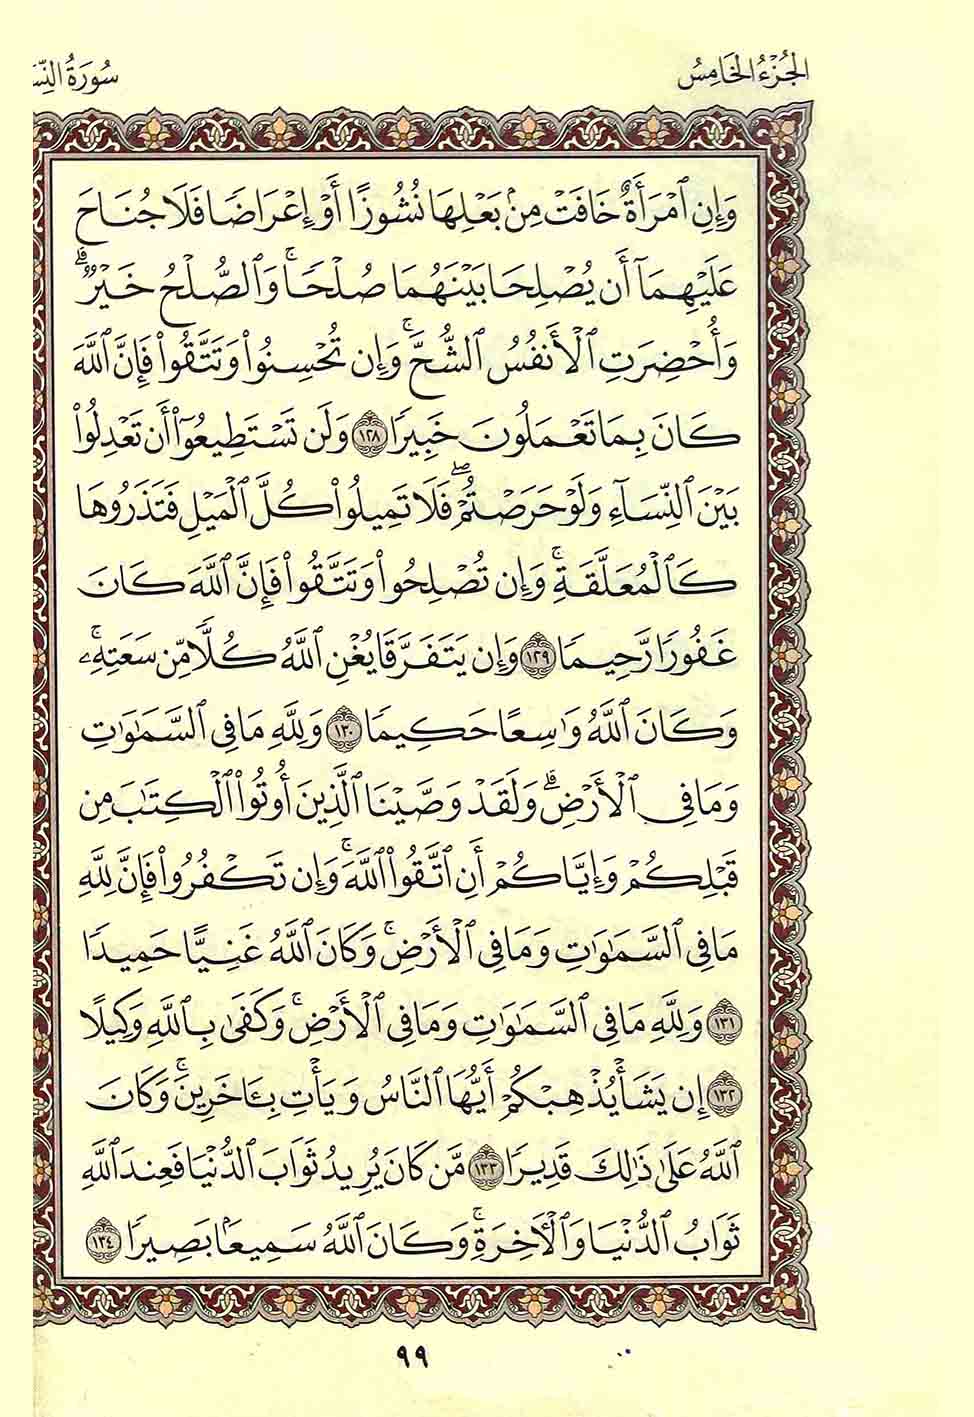 الجُزْءُ الخَامِسُ
سُورَةُ النِّسَ
وَإِنِ ٱمْرَأَةٌ خَافَتْ مِنۢ بَعْلِهَا نُشُوزًا أَوْ إِعْرَاضًا فَلَا جُنَاحَ
عَلَيْهِمَآ أَن يُصْلِحَا بَيْنَهُمَا صُلْحًا ۚ وَٱلصُّلْحُ خَيْرٌ ۗ
وَأُحْضِرَتِ ٱلْأَنفُسُ ٱلشُّحَّ ۚ وَإِن تُحْسِنُوا۟ وَتَتَّقُوا۟ فَإِنَّ ٱللَّهَ
كَانَ بِمَا تَعْمَلُونَ خَبِيرًا ١٢٨ وَلَن تَسْتَطِيعُوٓا۟ أَن تَعْدِلُوا۟
بَيْنَ ٱلنِّسَآءِ وَلَوْ حَرَصْتُمْ ۖ فَلَا تَمِيلُوا۟ كُلَّ ٱلْمَيْلِ فَتَذَرُوهَا
كَٱلْمُعَلَّقَةِ ۚ وَإِن تُصْلِحُوا۟ وَتَتَّقُوا۟ فَإِنَّ ٱللَّهَ كَانَ
غَفُورًا رَّحِيمًا ١٢٩ وَإِن يَتَفَرَّقَا يُغْنِ ٱللَّهُ كُلًّا مِّن سَعَتِهِۦ ۚ
وَكَانَ ٱللَّهُ وَٰسِعًا حَكِيمًا ١٣٠ وَلِلَّهِ مَا فِى ٱلسَّمَٰوَٰتِ
وَمَا فِى ٱلْأَرْضِ ۗ وَلَقَدْ وَصَّيْنَا ٱلَّذِينَ أُوتُوا۟ ٱلْكِتَٰبَ مِن
قَبْلِكُمْ وَإِيَّاكُمْ أَنِ ٱتَّقُوا۟ ٱللَّهَ ۚ وَإِن تَكْفُرُوا۟ فَإِنَّ لِلَّهِ
مَا فِى ٱلسَّمَٰوَٰتِ وَمَا فِى ٱلْأَرْضِ ۚ وَكَانَ ٱللَّهُ غَنِيًّا حَمِيدًا
١٣١ وَلِلَّهِ مَا فِى ٱلسَّمَٰوَٰتِ وَمَا فِى ٱلْأَرْضِ ۚ وَكَفَىٰ بِٱللَّهِ وَكِيلًا
١٣٢ إِن يَشَأْ يُذْهِبْكُمْ أَيُّهَا ٱلنَّاسُ وَيَأْتِ بِـَٔاخَرِينَ ۚ وَكَانَ
ٱللَّهُ عَلَىٰ ذَٰلِكَ قَدِيرًا ١٣٣ مَّن كَانَ يُرِيدُ ثَوَابَ ٱلدُّنْيَا فَعِندَ ٱللَّهِ
ثَوَابُ ٱلدُّنْيَا وَٱلْـَٔاخِرَةِ ۚ وَكَانَ ٱللَّهُ سَمِيعًۢا بَصِيرًا ١٣٤
٩٩